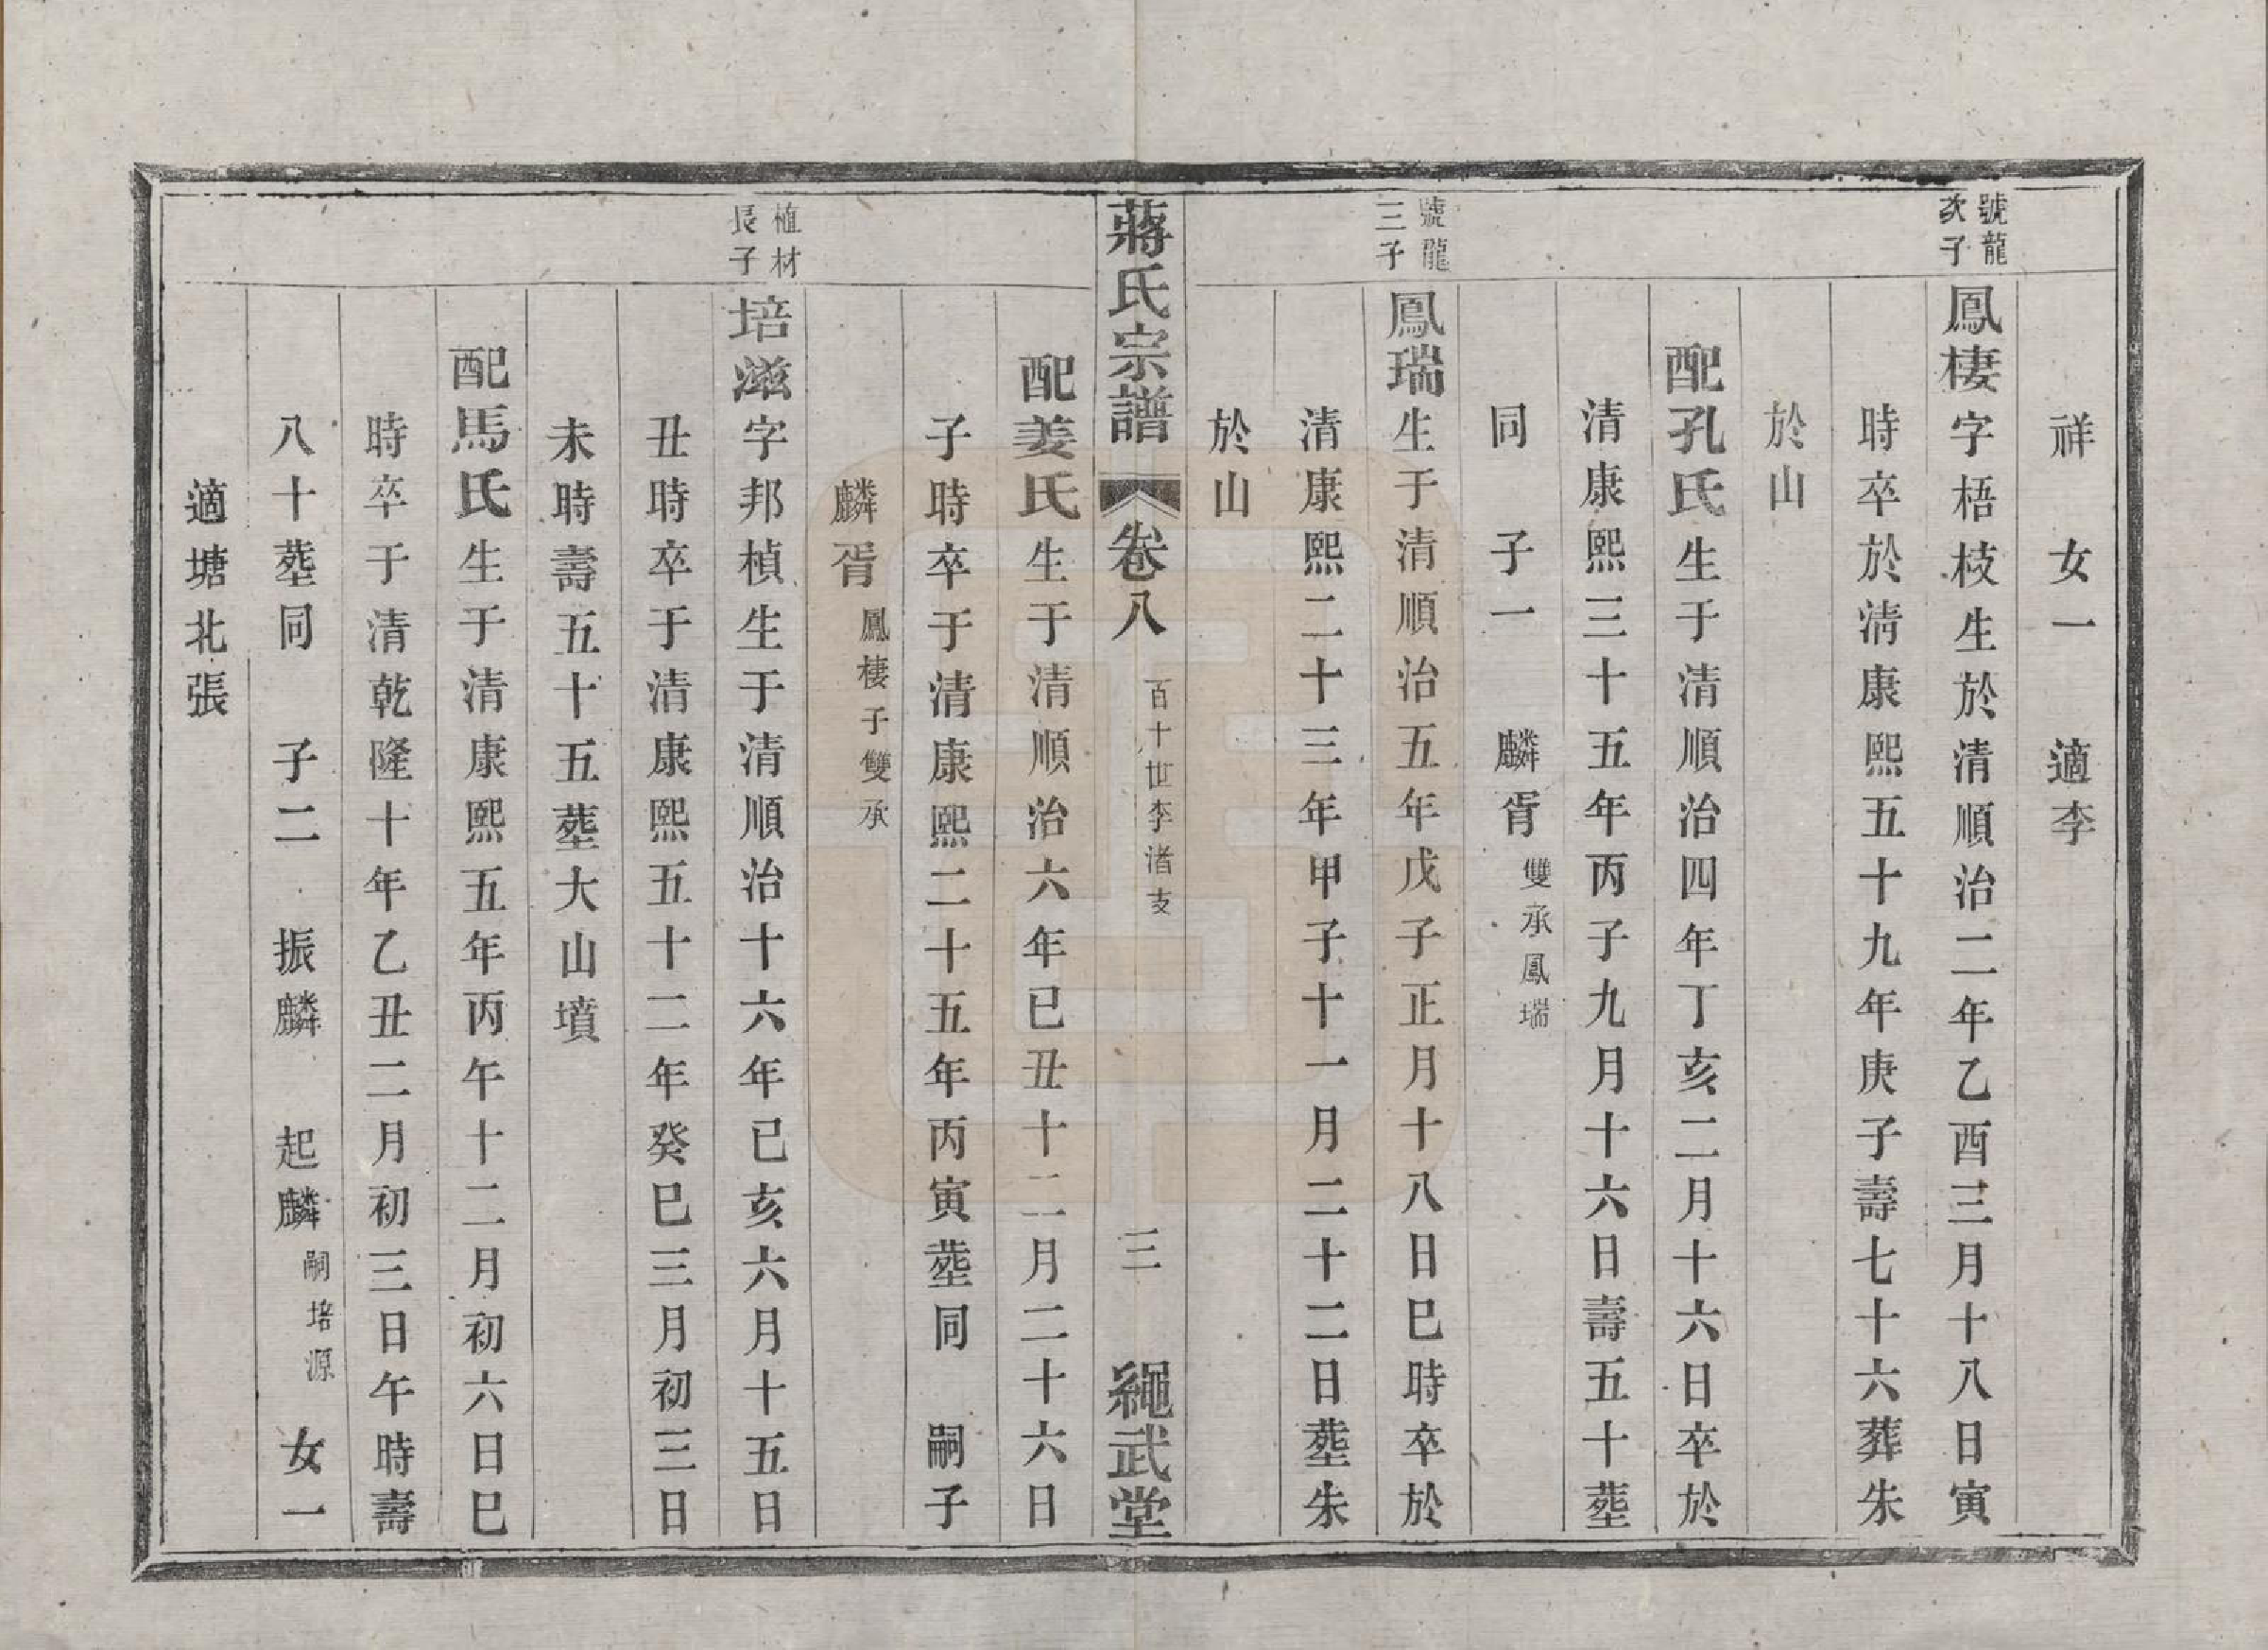 祥　女一　適李
號龍次子
鳳棲字梧枝生於清順治二年乙酉三月十八日寅
時卒於清康熙五十九年庚子壽七十六葬朱
於山
配孔氏生于清順治四年丁亥二月十六日卒於
清康熙三十五年丙子九月十六日壽五十塟
同　子一　麟胥雙承鳳瑞
號龍三子
鳳瑞生于清順治五年戊子正月十八日巳時卒於
清康熙二十三年甲子十一月二十二日塟朱
於山
蔣氏宗譜　卷八　百十世李渚支　三　繩武堂
配姜氏生于清順治六年己丑十二月二十六日
子時卒于清康熙二十五年丙寅塟同　嗣子
麟胥鳳棲子雙承
植材長子
培滋字邦楨生于清順治十六年己亥六月十五日
丑時卒于清康熙五十二年癸巳三月初三日
未時壽五十五塟大山墳
配馬氏生于清康熙五年丙午十二月初六日巳
時卒于清乾隆十年乙丑二月初三日午時壽
八十塟同　子二　振麟　起麟嗣培源　女一
適塘北張